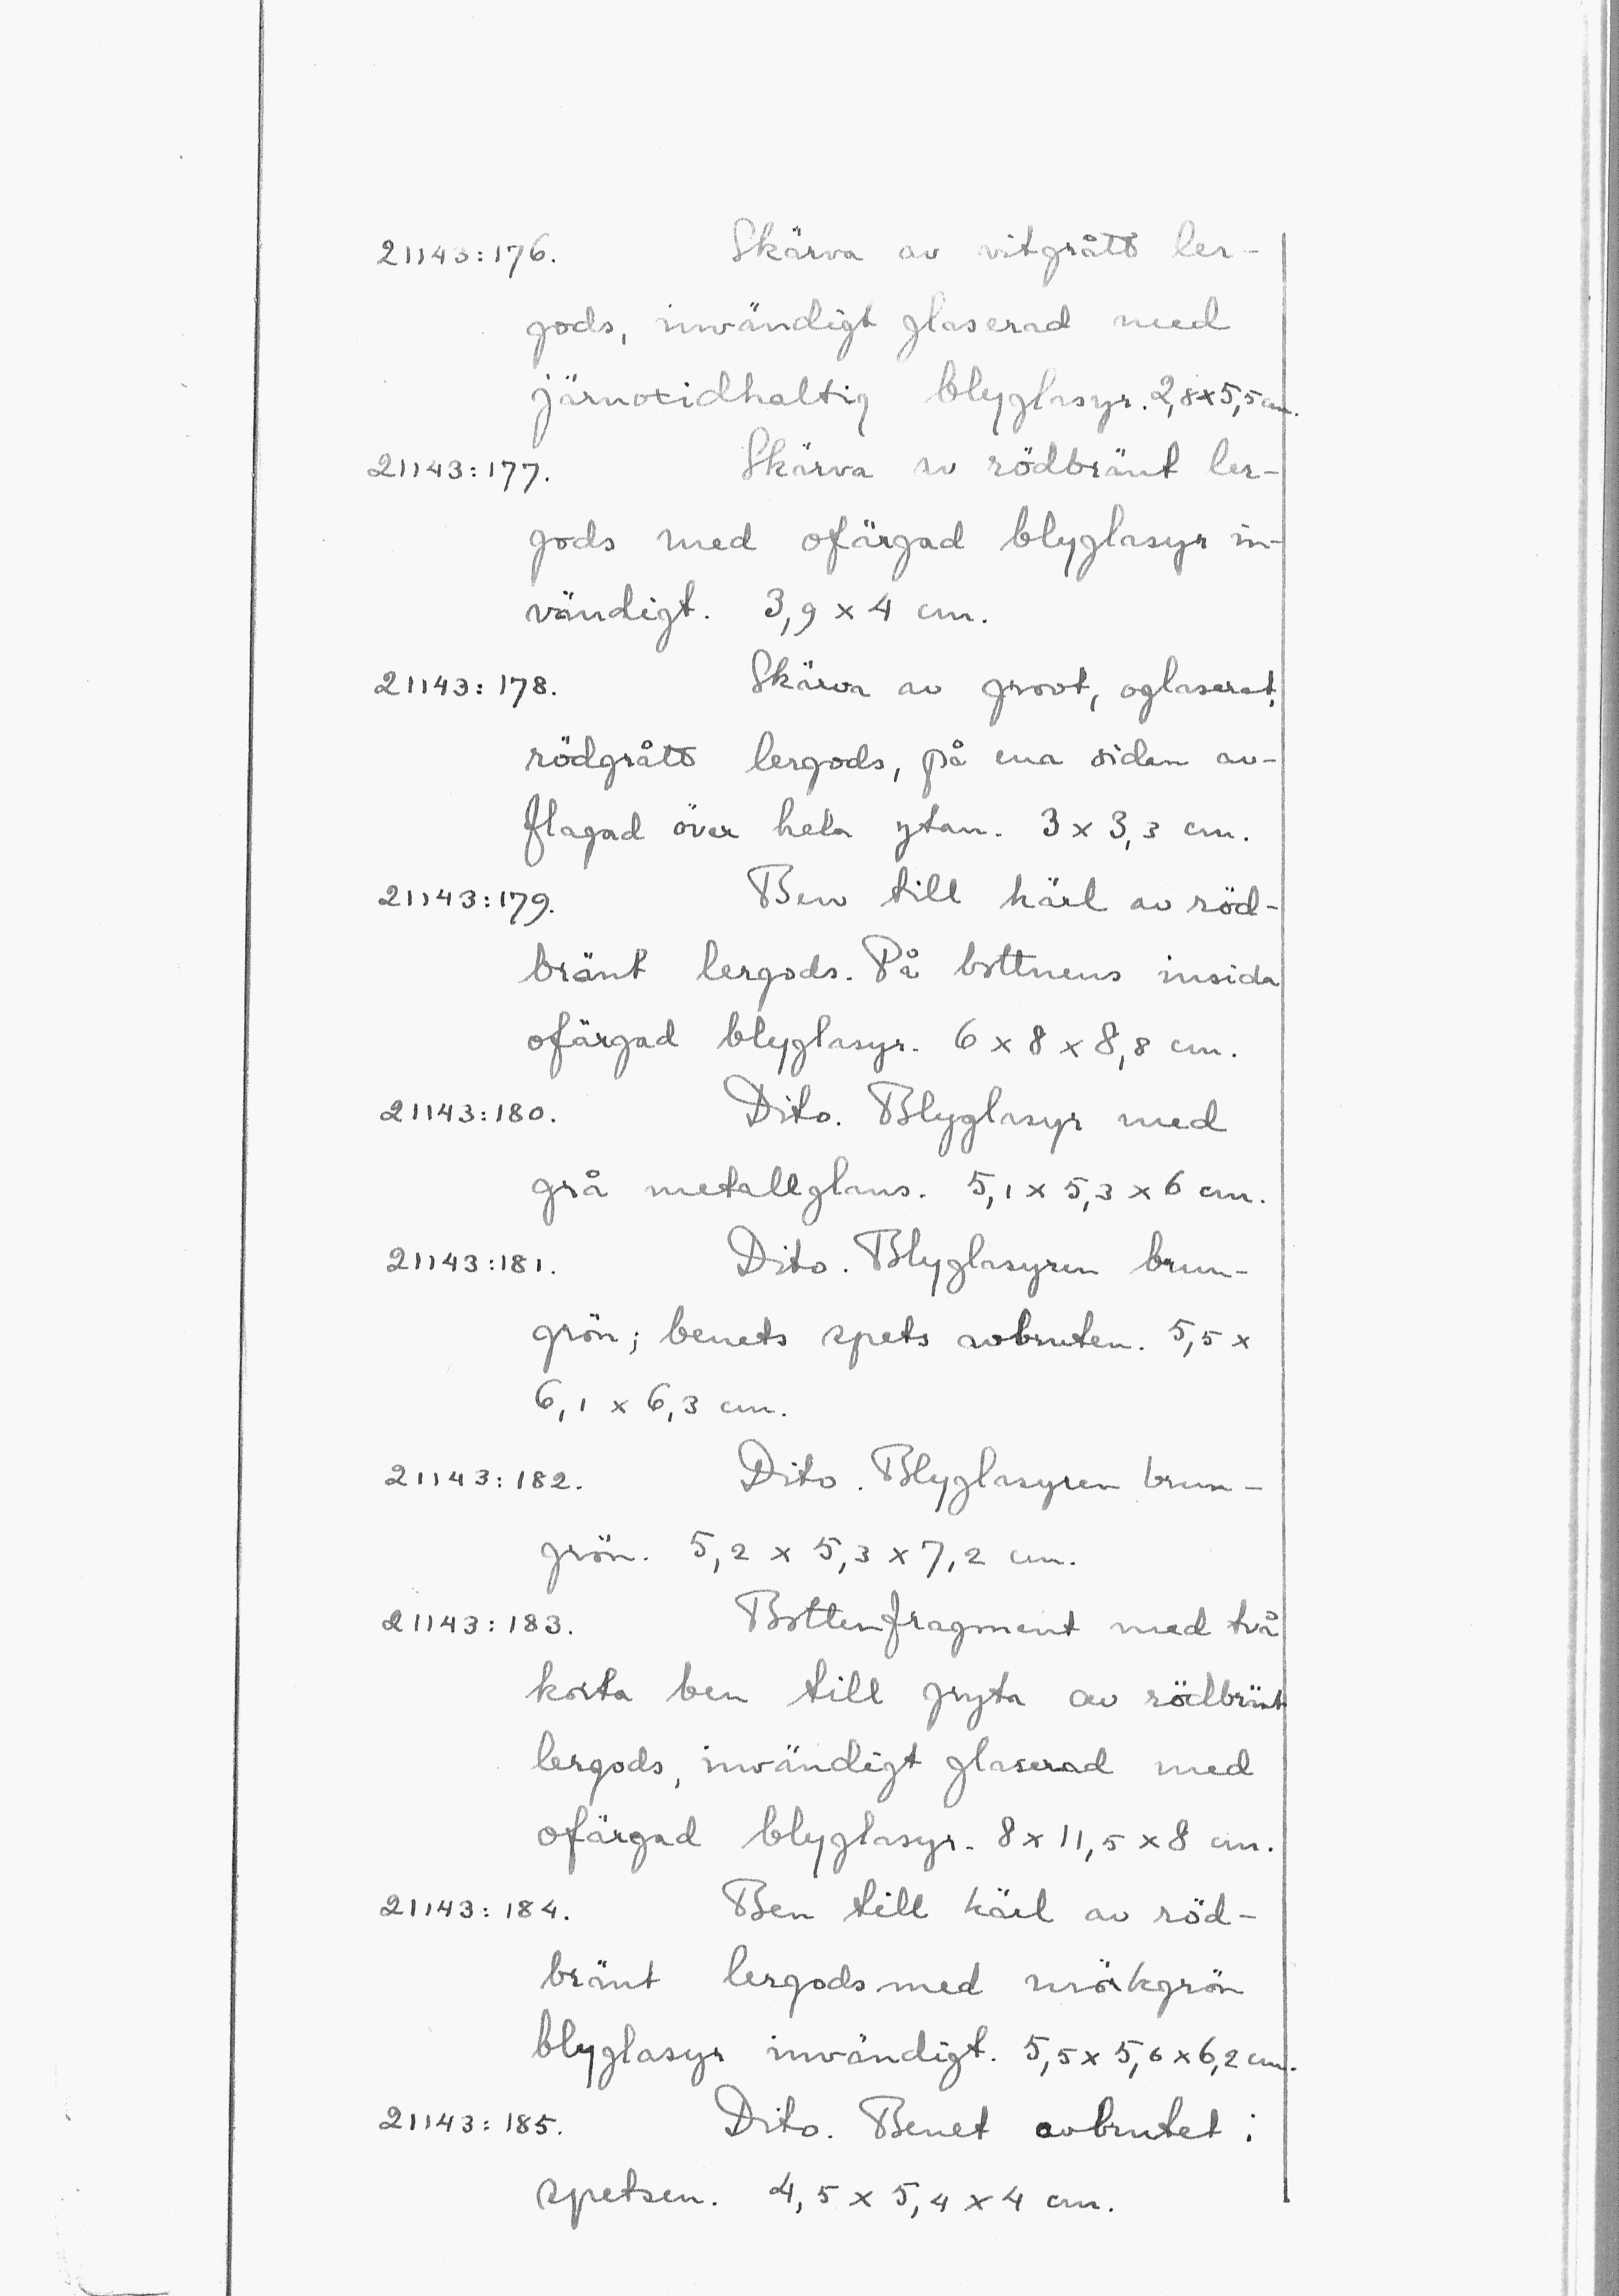 21143:176. Skärva av vitgrått ler-
gods, invändigt glaserad med
järnoxidhaltig blyglasyr. 2,8x5,5 cm.
21143:177. Skärva av rödbränt ler-
gods med ofärgad blyglasyr in-
vändigt. 3,9 x 4 cm.
21143:178. Skärva av grovt, oglaserat,
rödgrått lergods, på ena sidan av-
flagad över hela ytan. 3 x 3,3 cm.
21143:179. Ben till kärl av röd-
bränt lergods. På bottnens insida
ofärgad blyglasyr. 6 x 8 x 8,8 cm.
21143:180. Dito. Blyglasyr med
grå metallglans. 5,1 x 5,3 x 6 cm.
21143:181. Dito. Blyglasyren brun-
grön; benets spets avbruten. 5,5 x
6,1 x 6,3 cm.
21143:182. Dito. Blyglasyren brun-
grön. 5,2 x 5,3 x 7,2 cm.
21143:183. Bottenfragment med två
korta ben till gryta av rödbränt
lergods, invändigt glaserad med
ofärgad blyglasyr. 8 x 11,5 x 8 cm.
21143:184. Ben till kärl av röd-
bränt lergods med mörkgrön
blyglasyr invändigt. 5,5 x 5,6 x 6,2 cm.
21143:185. Dito. Benet avbrutet i
spetsen. 4,5 x 5,4 x 4 cm.